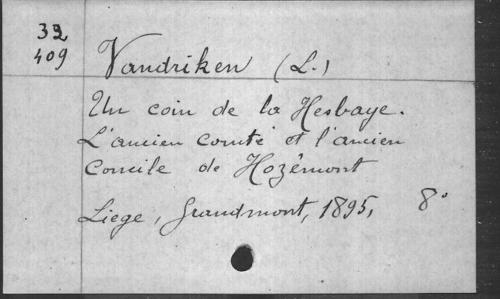 32
409
Vandriken (L.)
Un coin de la Hesbaye.
L'ancien comté et l'ancien
Concile de Hozémont
Liege, Grandmont, 1895, 8°